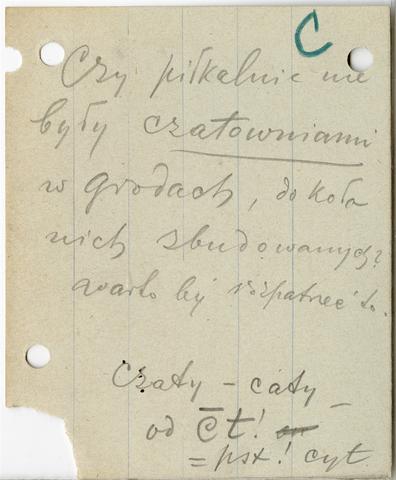 C
Czy piłkalnie nie
były czatowniami
w grodach, dokoła
nich zbudowanych?
warto by rozpatrzeć to.
Czaty – caty –
od c̄t!
= pst! cyt